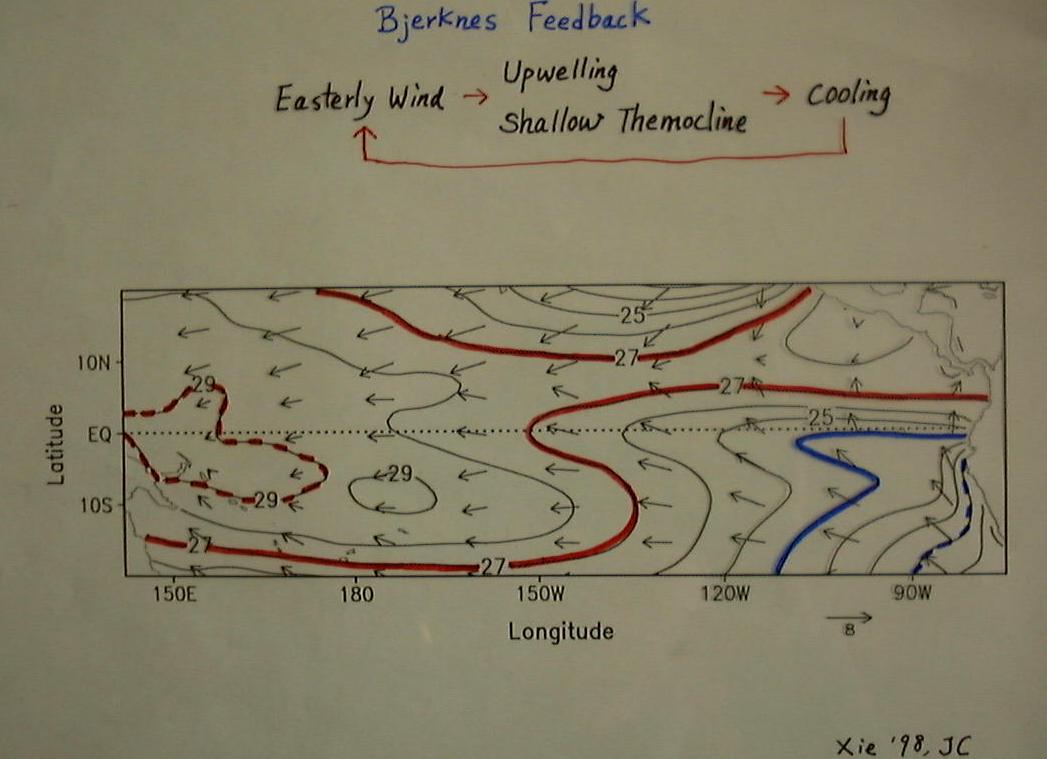 Bjerknes Feedback
Upwelling
Easterly Wind → → Cooling
Shallow Themocline
25
27
10N
29
27
25
EQ
29
29
10S
27
27
150E 180 150W 120W 90W
Latitude
Longitude
8
Xie '98, JC